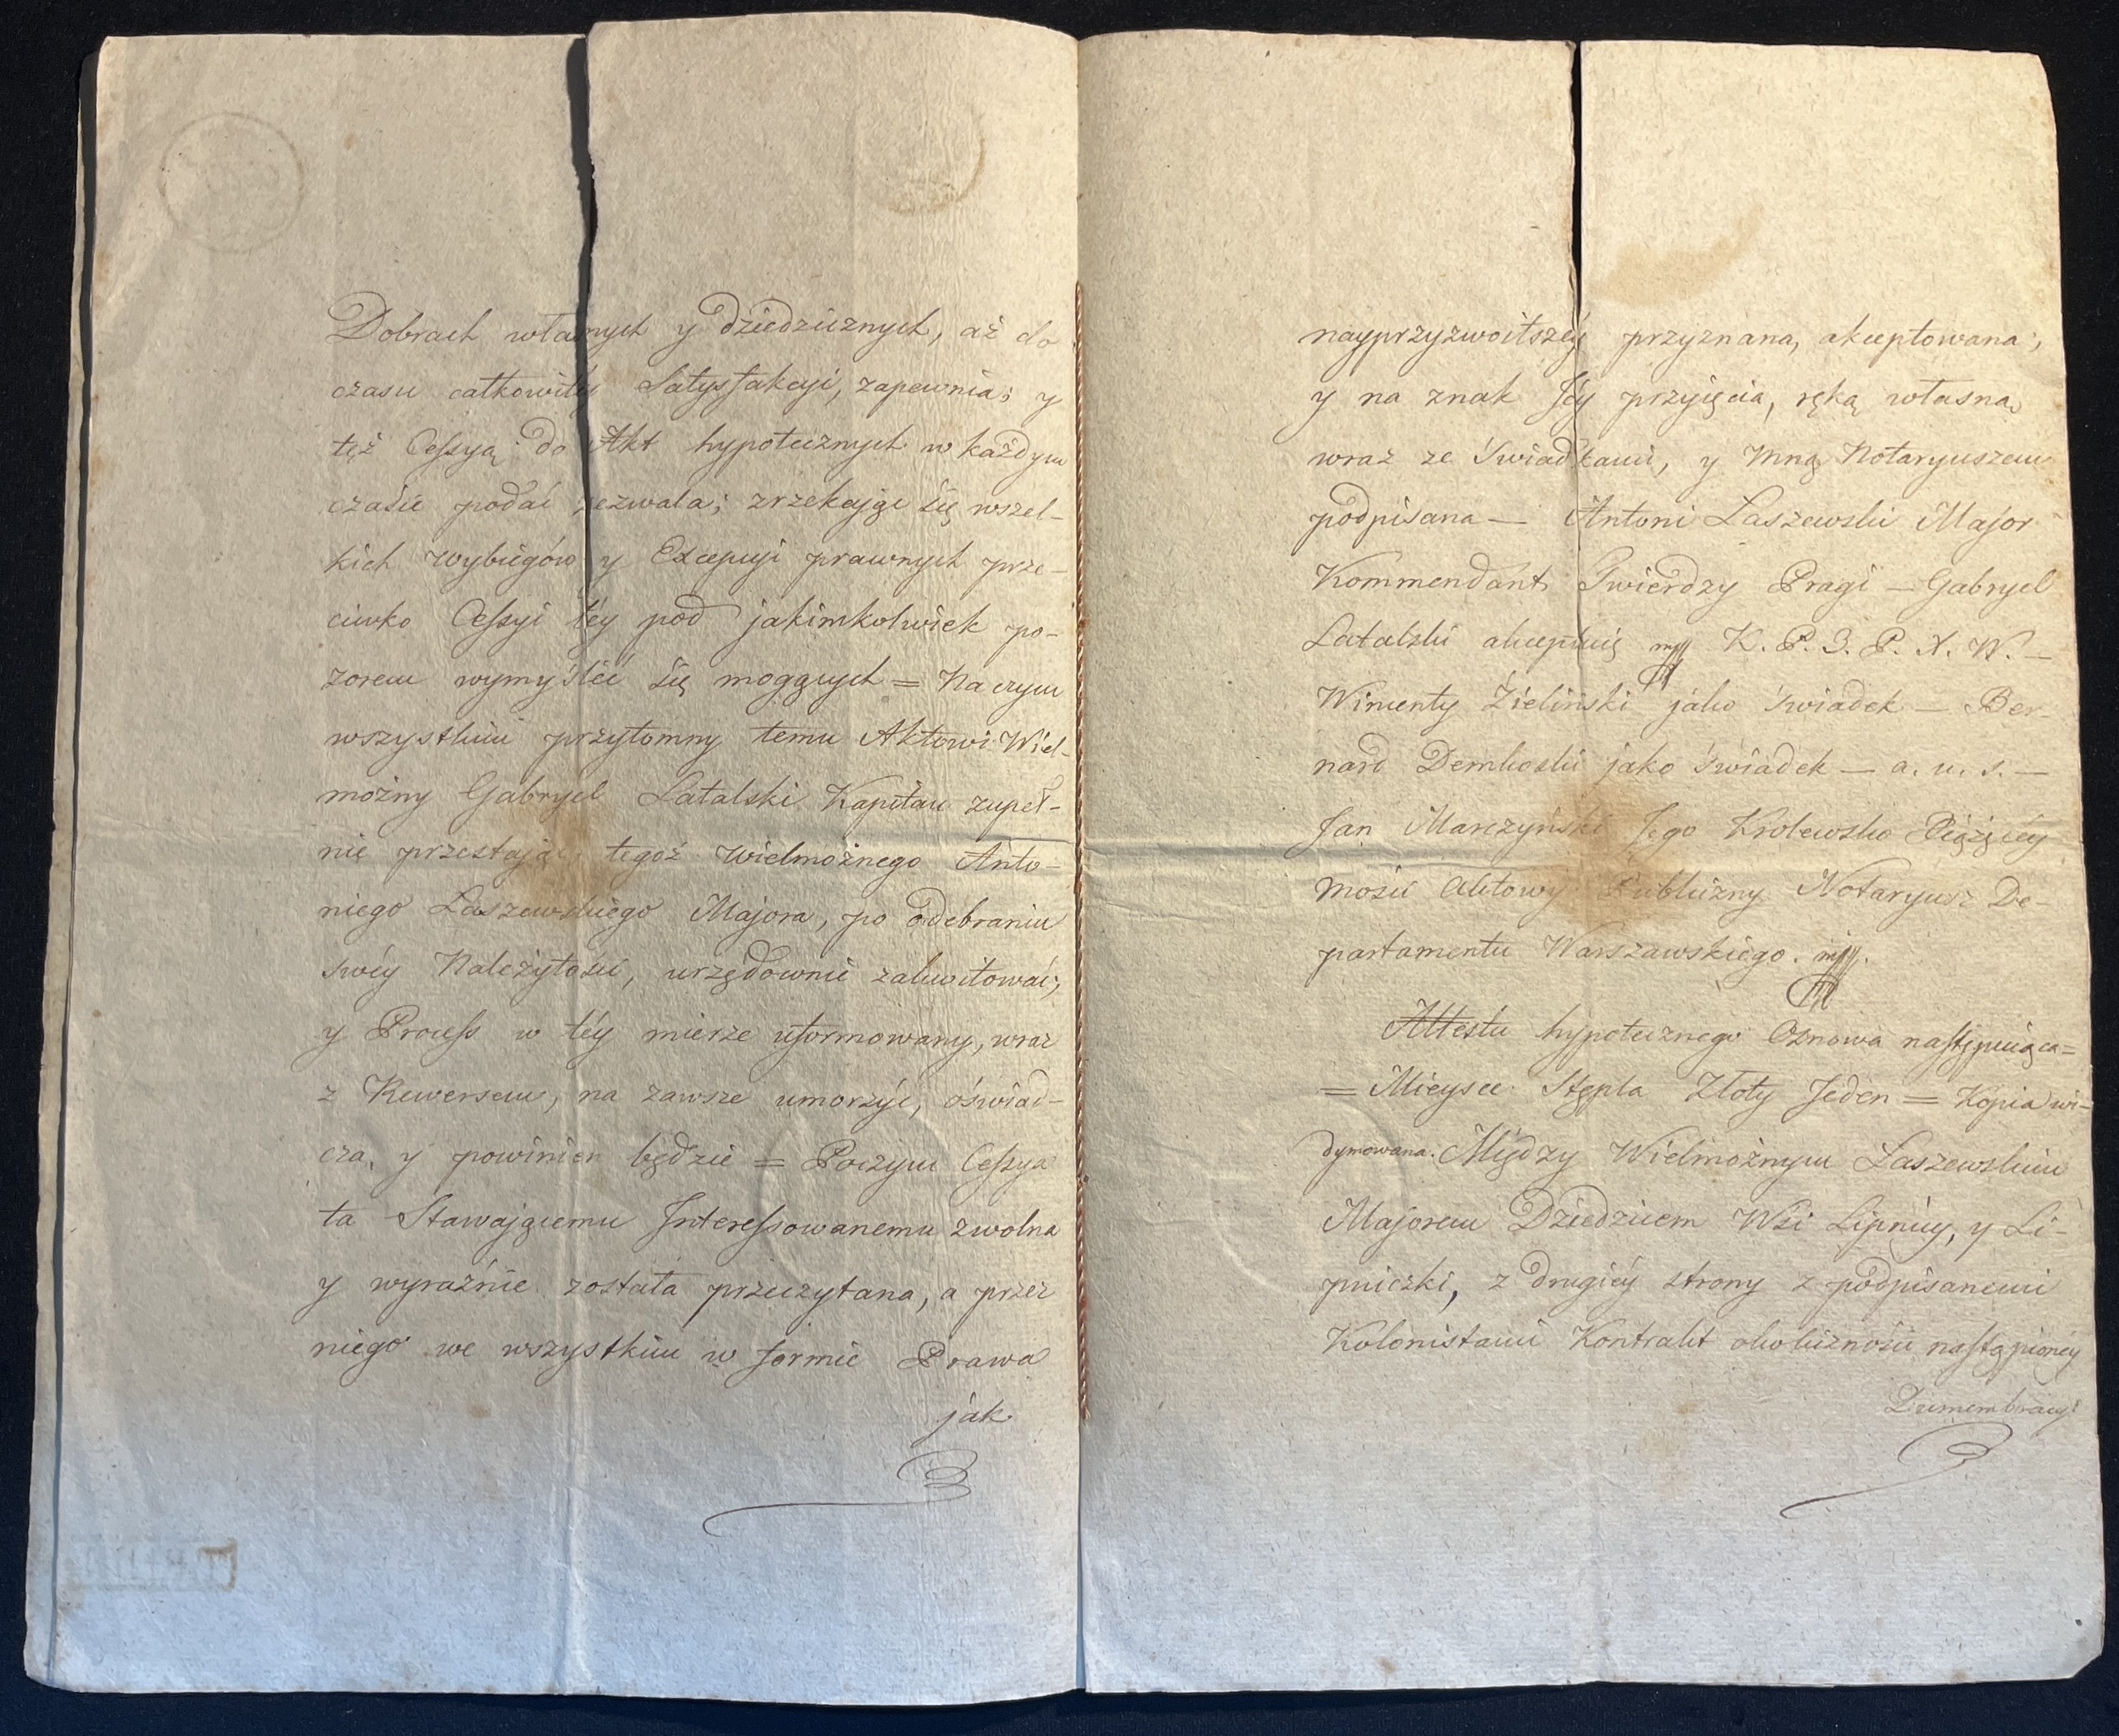 Dobrach własnych y dziedzicznych, aż do
czasu całkowitéy Satysfakcyi, zapewnia; y
też Cessyą do Akt hypotecznych w każdym
czasie podać zezwala; zrzekaiąc się wszel-
kich wybiegów y Excepcyi prawnych prze-
ciwko Cessyi téy pod jakimkolwiek po-
zorem wymyślić się mogących = Na czym
wszystkim przytomny temu Aktowi Wiel-
możny Gabryel Latalski Kapitan zupeł-
nie przestając, tegoż Wielmożnego Anto-
niego Laszewskiego Majora, po odebraniu
swéy Należytości, urzędownie zakwitować;
y Process w téy mierze uformowany, wraz
z Rewersem, na zawsze umorzyć, oświad-
cza, y powinien będzie = Poczym Cessya
ta Stawającemu Interessowanemu zwolna
y wyraźnie została przeczytana, a przez
niego we wszystkim w formie Prawa
jak
nayprzyzwoitszéy przyznana, akceptowana;
y na znak Jéy przyięcia, ręką własną
wraz ze Świadkami, y Mną Notaryuszem
podpisana — Antoni Laszewski Major
Kommendant Twierdzy Pragi — Gabryel
Latalski akceptuię mpp K. P. 3. P. X. W. —
Wincenty Zieliński jako Świadek — Ber-
nard Demboski jako Świadek — a. u. s. —
Jan Marczyński Jego Krolewsko Xiążęcéy
Mości Aktowy Publiczny Notaryusz De-
partamentu Warszawskiego. mpp.
Attestu hypotecznego Osnowa następuiąca =
= Mieysce Stępla Złoty Jeden = Kopia wi-
dymowana. Między Wielmożnym Laszewskim
Majorem Dziedzicem Wsi Lipnicy, y Li-
pniczki, z drugiéy strony z podpisanemi
Kolonistami Kontrakt okoliczności nastąpionéy